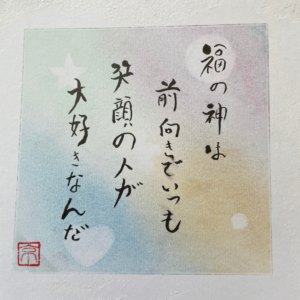 福の神は
前向きでいつも
笑顔の人が
大好きなんだ